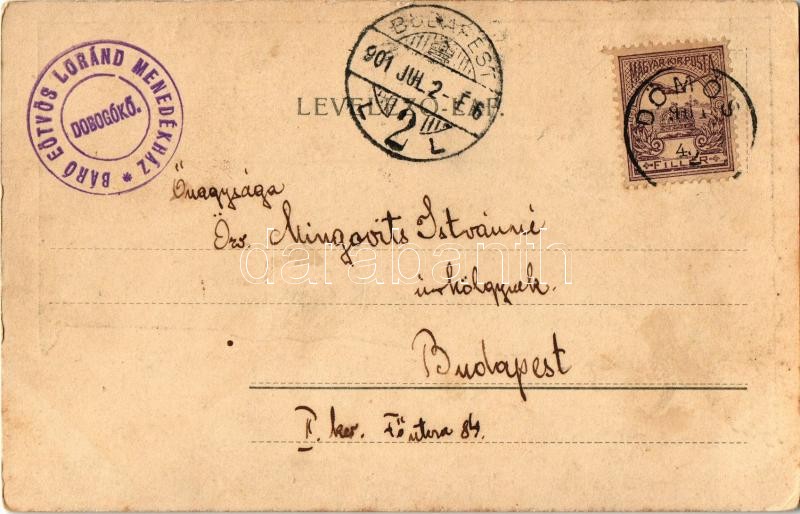 BÁRÓ EÖTVÖS LORÁND MENEDÉKHÁZ *
DOBOGÓKŐ.
BUDAPEST
901 JUL 2
2
L
MAGYAR KIR. POSTA
4
FILLÉR
DÖMÖS
LEVELEZŐ-LAP.
Őnagysága
Özv. Mingovits Istvánné
úrhölgynek.
Budapest
II. ker. Fő utcza 84.
darabanth